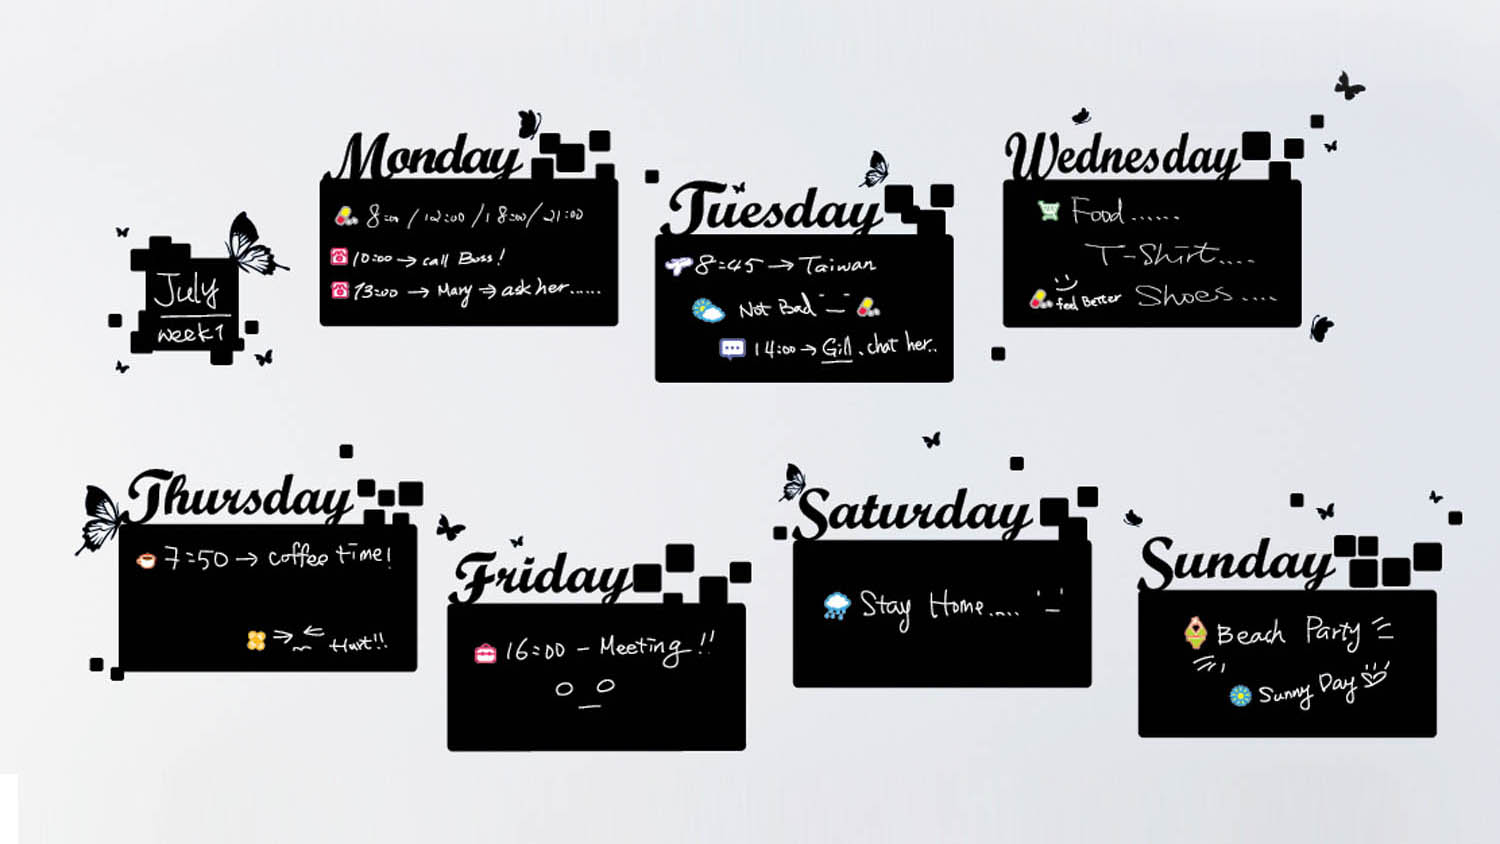 July
week1
Monday
8:00 / 12:00 / 18:00 / 21:00
10:00 → call Boss!
13:00 → Mary → ask her......
Tuesday
8:45 → Taiwan
Not Bad
14:00 → Gill. chat her..
Wednesday
Food......
T-Shirt....
feel Better Shoes....
Thursday
7:50 → coffee time!
Hurt!!
Friday
16:00 - Meeting!!
Saturday
Stay Home....
Sunday
Beach Party
Sunny Day